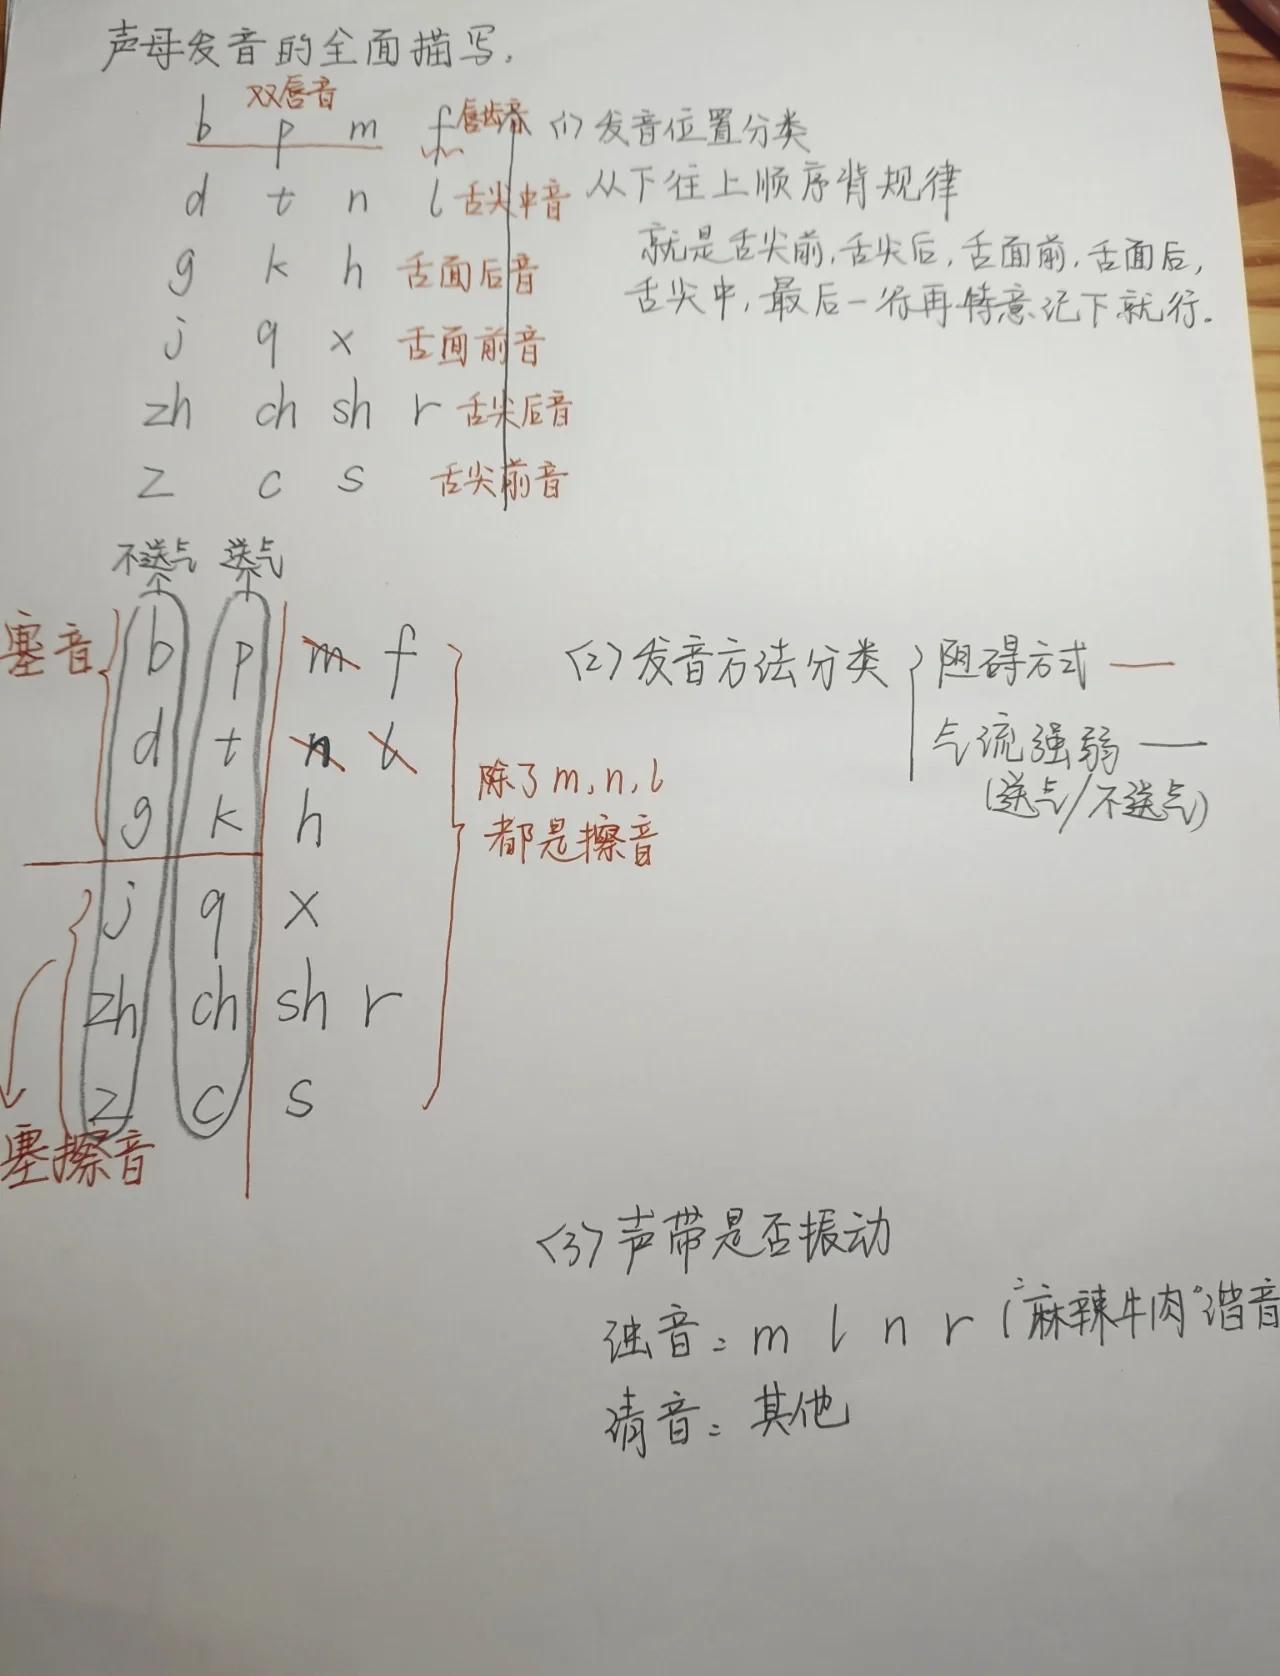 声母发音的全面描写.
双唇音
b p m f 唇齿音 <1>发音位置分类
d t n l 舌尖中音 从下往上顺序背规律
就是舌尖前,舌尖后,舌面前,舌面后,
g k h 舌面后音
舌尖中,最后一行再特意记下就行.
j q x 舌面前音
zh ch sh r 舌尖后音
z c s 舌尖前音
不送气 送气
塞音 b p m f <2>发音方法分类 阻碍方式 —
d t n l 气流强弱 —
(送气/不送气)
除了m,n,l
g k h 都是擦音
j q x
zh ch sh r
z c s
塞擦音
<3>声带是否振动
浊音: m l n r ("麻辣牛肉"谐音
清音: 其他